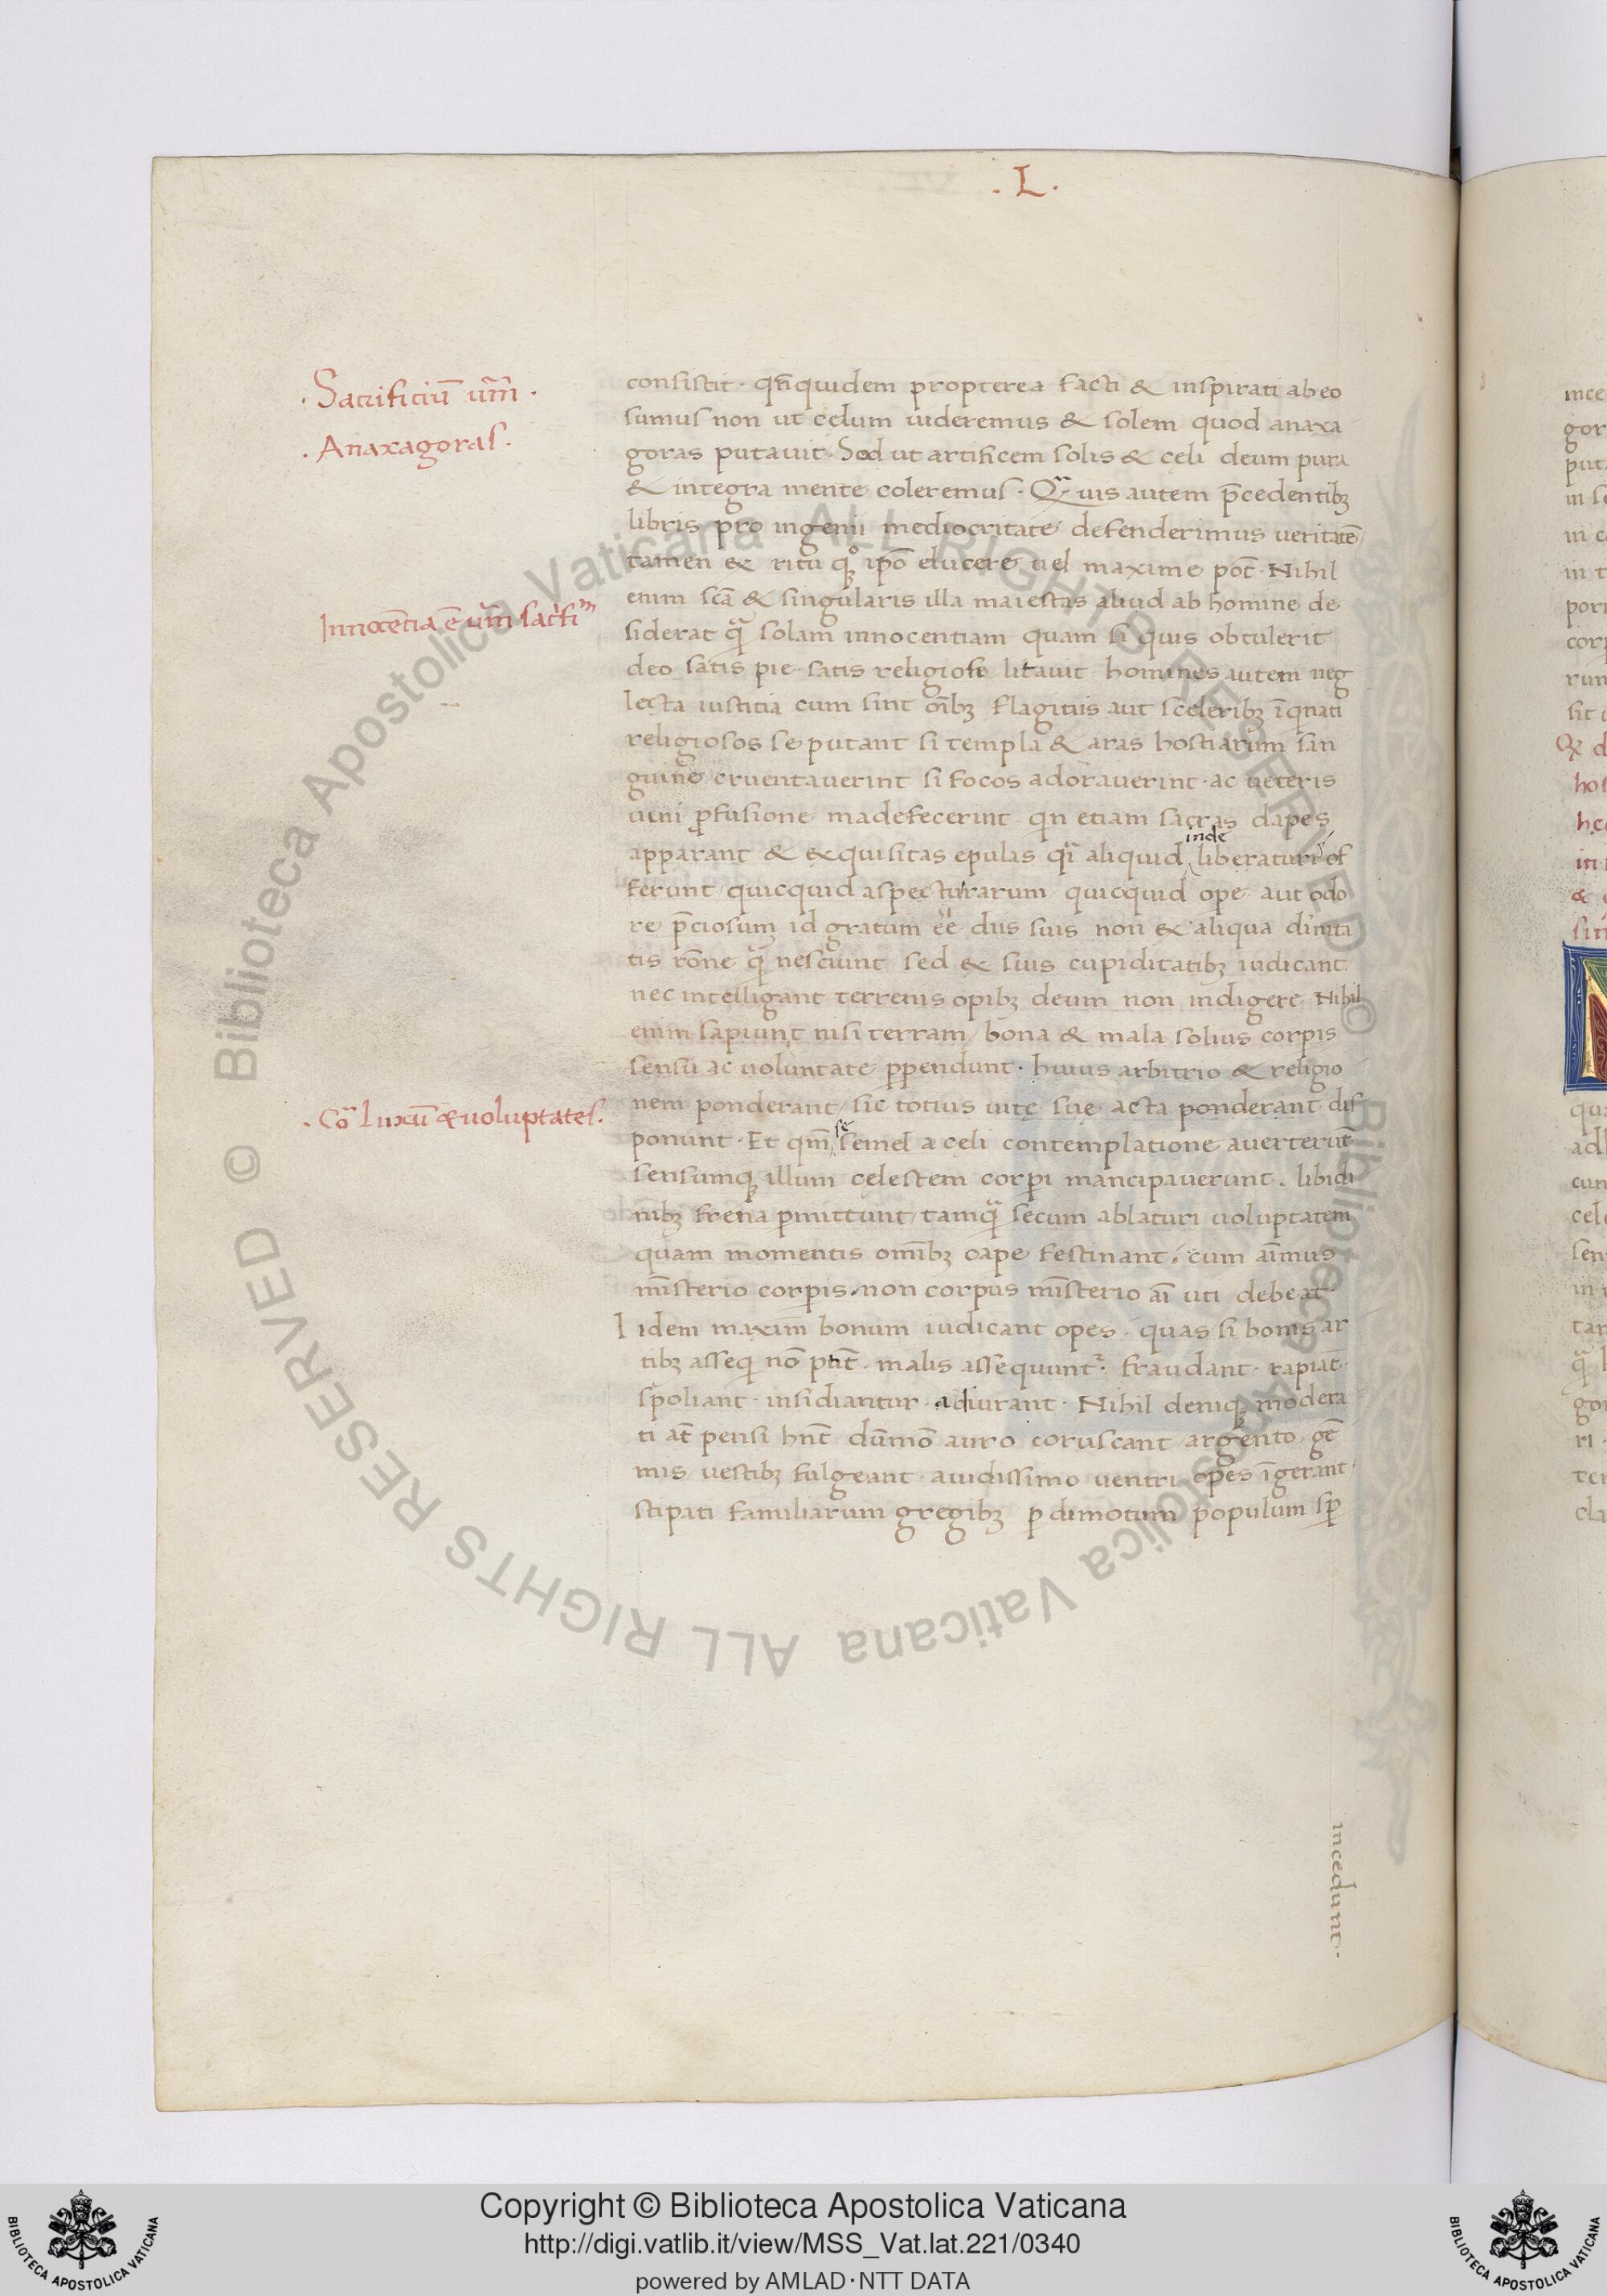 . L .
. Sacrificiū um̄ .
. Anaxagoras .
consistit · qn̄quidem propterea facti & inspirati ab eo
sumus non ut celum uideremus & solem quod anaxa
goras putauit · Sed ut artificem solis & celi deum pura
& integra mente coleremus · Quis autem p̄cedentibꝫ
libris pro ingenii mediocritate defenderimus ueritatē
tamen ex ritu ipō elucere uel maxime pōt · Nihil
enim scā & singularis illa maiestas aliud ab homine de
Innocētia ē um̄
siderat qͣ solam innocentiam quam si quis obtulerit
deo satis pie · satis religiose litauit · homines autem neg
lecta iustitia cum sint oībꝫ flagitiis aut sceleribꝫ īqnati
religiosos se putant si templa & aras hostiarum san
guine cruentauerint si focos adorauerint · ac ueteris
uini ꝓfusione madefecerint · qn etiam sacras dapes
apparant & exquisitas epulas qͥ aliquid inde liberaturis of
ferunt quicquid aspectu rarum quicquid ope aut odo
re p̄ciosum id gratum ēe diis suis non ex aliqua diuini
tis rōne qͣ nesciunt sed ex suis cupiditatibꝫ iudicant
nec intelligant terrenis opibꝫ deum non indigere · Nihil
enim sapiunt nisi terram / bona & mala solius corpis
sensu ac uoluntate ꝑpendunt · huius arbitrio & religio
. Cō luxū & uoluptates .
nem ponderant / sic totius uite sue acta ponderant dis
ponunt · Et qm̄ sē semel a celi contemplatione auerterūt
sensumqꝫ illum celestem corꝑi mancipauerunt . libidi
nibꝫ frena ꝑmittunt / tamqͣ secum ablaturi uoluptatem
quam momentis omībꝫ cape festinant · cum aīmus
mīsterio corꝑis · non corpus mīsterio aī uti debeat ·
Iidem maxim bonum iudicant opes · quas si bonis ar
tibꝫ assequi nō pn̄t · malis assequunt · fraudant · rapiāt
spoliant · insidiantur adiurant · Nihil deniqꝫ modera
ti āt pensi hn̄t dūmō auro coruscant argento gē
mis / uestibꝫ fulgeant · auidissimo uentri opes īgerant
stipati familiarum gregibꝫ ꝑ dimotum populum sꝑ
incedunt ·
Copyright © Biblioteca Apostolica Vaticana
http://digi.vatlib.it/view/MSS_Vat.lat.221/0340
powered by AMLAD · NTT DATA
BIBLIOTECA APOSTOLICA VATICANA
BIBLIOTECA APOSTOLICA VATICANA
© Biblioteca Apostolica Vaticana ALL RIGHTS RESERVED © Biblioteca Apostolica Vaticana ALL RIGHTS RESERVED